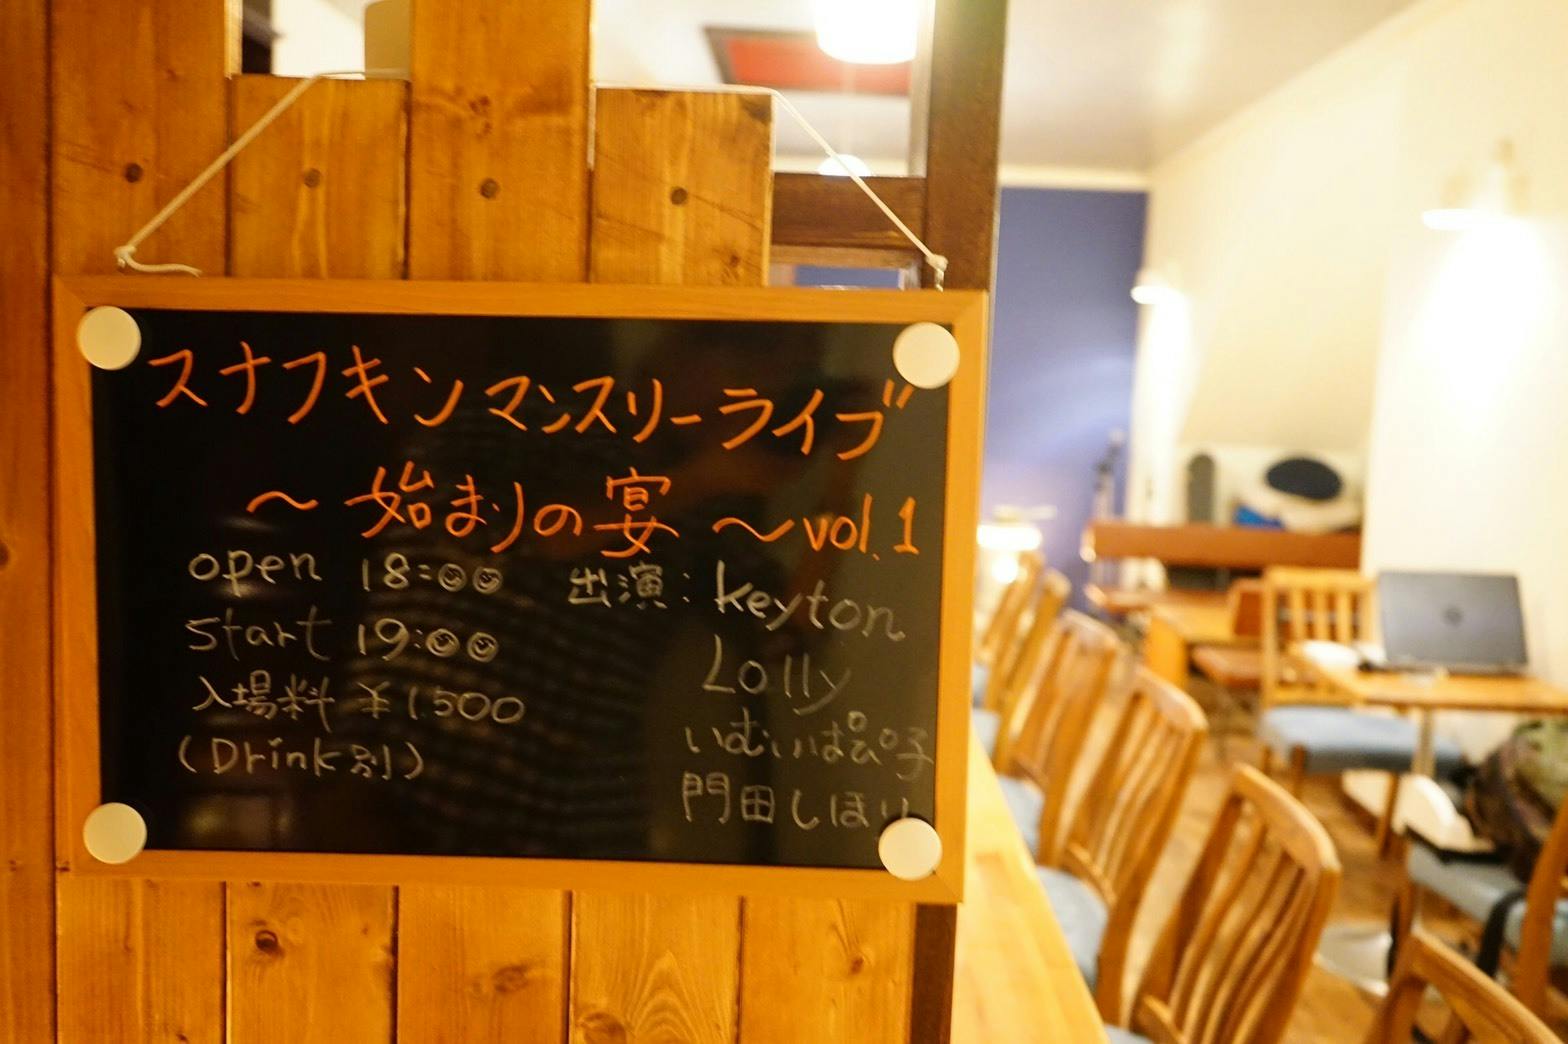 スナフキンマンスリーライブ
～始まりの宴～vol.1
open 18:00
start 19:00
入場料 ¥1,500
(Drink別)
出演: keyton
Lolly
いむいぱぴ子
門田しほり